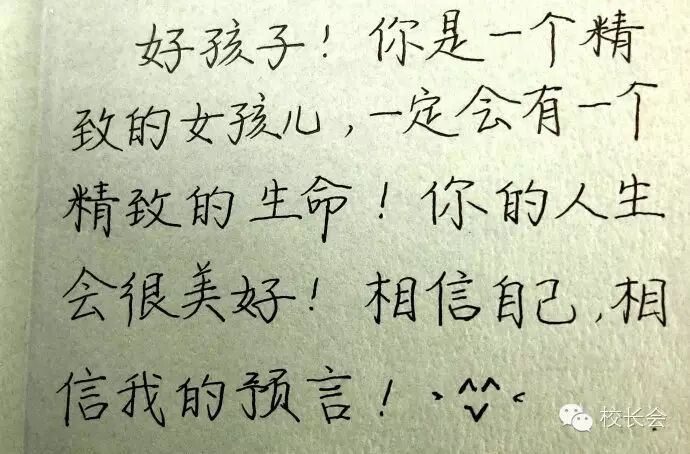 好孩子！你是一个精
致的女孩儿，一定会有一个
精致的生命！你的人生
会很美好！相信自己，相
信我的预言！
校长会